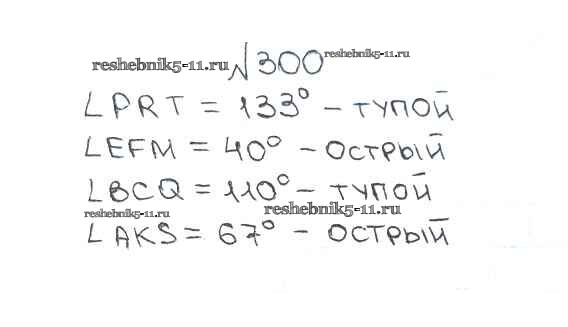 reshebnik5-11.ru √300 reshebnik5-11.ru
∠PRT = 133° - тупой
∠EFM = 40° - острый
∠BCQ = 110° - тупой
reshebnik5-11.ru reshebnik5-11.ru
∠AKS = 67° - острый